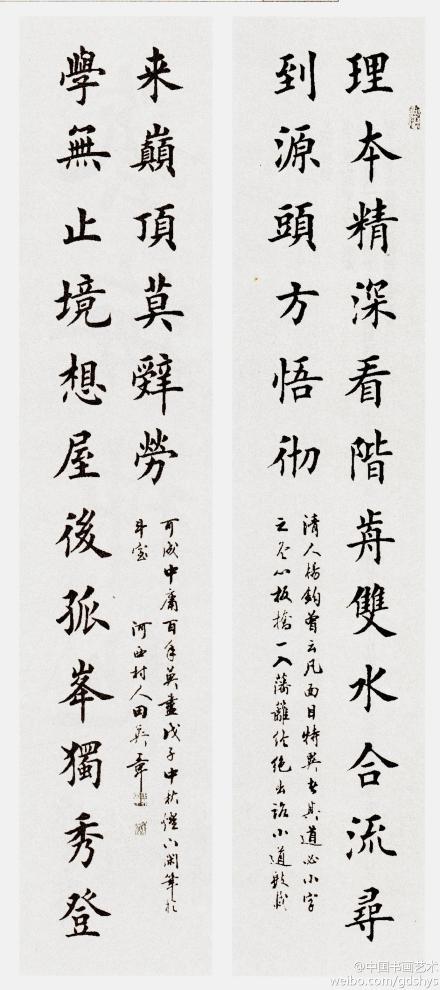 理本精深看階歬雙水合流尋
到源頭方悟彻
清人楊鈞曾云凡面目特異者其道必小字
之冬心板橋一入藩籬終絕出路小道
學無止境想屋後孤峯獨秀登
来巔頂莫辭勞
可成中庸百年莫盡戊子中秋燈下閑筆於
斗室 河西村人田英章
@中国书画艺术
weibo.com/gdshys